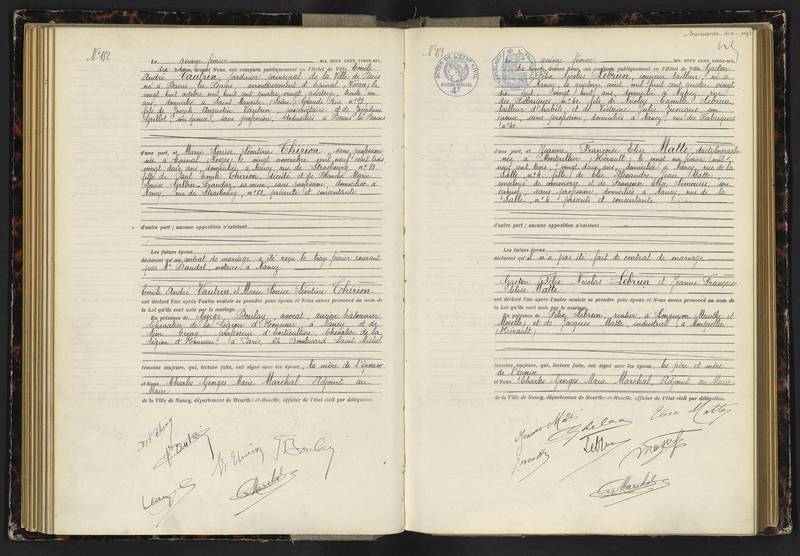 N° 153
Le quinze février MIL NEUF CENT VINGT-SIX,
dix heures, devant Nous, ont comparu publiquement en l'Hôtel de Ville Emile
André Vautrin, jardinier principal de la Ville de Paris
né à Bains les Bains, arrondissement d'Epinal, Vosges, le
vingt huit octobre mil huit cent quatre vingt quatorze, trente un
ans, domicilié à Saint Mandé, Seine, Grande Rue n°
fils de Joseph Augustin Vautrin, propriétaire, et de Joséphine
Grillot son épouse, sans profession, domiciliés à Bains les Bains
d'une part, et Marie Louise Léontine Thirion, sans profession
née à Epinal, Vosges, le vingt novembre mil neuf cent trois
vingt deux ans, domiciliée à Nancy, rue de Strasbourg n° 81,
fille de Paul Emile Thirion, décédé et de Blanche Marie
Louise sa veuve, sans profession, domiciliée à
Nancy, rue de Strasbourg n° 81, présente et consentante
d'autre part ; aucune opposition n'existant
Les futurs époux
déclarent qu'un contrat de mariage a été reçu le treize février courant
par Me Baudot, notaire à Nancy
Emile André Vautrin et Marie Louise Léontine Thirion
ont déclaré l'un après l'autre vouloir se prendre pour époux et Nous avons prononcé au nom de
la Loi qu'ils sont unis par le mariage.
En présence de George Boulay, avocat, ancien bâtonnier
Chevalier de la Légion d'Honneur à Nancy et de
Léon professeur d'horticulture, Chevalier de la
Légion d'Honneur à Paris, Boulevard Saint Michel
témoins majeurs, qui, lecture faite, ont signé avec les époux, la mère de l'épouse
et Nous Charles Georges Marie Marchal, Adjoint au
Maire
de la Ville de Nancy, département de Meurthe-et-Moselle, officier de l'état civil par délégation.
Vautrin
Thirion
Boulay
Marchal
Le quinze février MIL NEUF CENT VINGT-SIX,
heures, devant Nous, ont comparu publiquement en l'Hôtel de Ville Gaston
Félix Nicolas Lebrun, coupeur tailleur, né à
Nancy, le quatorze août mil huit cent quatre vingt
dix sept, vingt huit ans, domicilié à Nancy, rue
des Fabriques n° 41, fils de Nicolas Camille Lebrun,
tailleur d'habits, et de Victorine Julie son
épouse, sans profession, domiciliés à Nancy, rue des Fabriques
n° 41
d'une part, et Jeanne, Françoise Elise Matte, dactylographe
née à Montpellier, Hérault, le vingt un janvier mil
neuf cent trois, vingt deux ans, domiciliée à Nancy, rue de la
Salle, n° 4, fille de Elie Alexandre Jean Matte,
employé de commerce et de Françoise Elise Limouse, son
épouse, sans profession, domiciliés à Nancy, rue de la
Salle, n° 4, présents et consentants
d'autre part ; aucune opposition n'existant
Les futurs époux
déclarent qu'il n'a pas été fait de contrat de mariage
Gaston Félix Nicolas Lebrun et Jeanne Françoise
Elise Matte
ont déclaré l'un après l'autre vouloir se prendre pour époux et Nous avons prononcé au nom de
la Loi qu'ils sont unis par le mariage.
En présence de Félix Lebrun, rentier à Longuyon Meurthe et
Moselle, et de Jacques Matte industriel à Montpellier
(Hérault)
témoins majeurs, qui, lecture faite, ont signé avec les époux, les père et mère
de l'épouse
et Nous Charles Georges Marie Marchal, Adjoint au Maire
de la Ville de Nancy, département de Meurthe-et-Moselle, officier de l'état civil par délégation.
Jeanne Matte
Elise Matte
Lebrun
Marchal